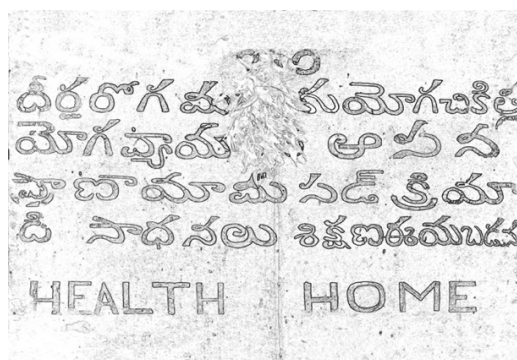 దీర్ఘరోగమ కుయోగచికిత్స
యోగవ్యాయమ ఆసన
ప్రాణాయామ సడ్ క్రియా
ది సాధనలు శిక్షణఈయబడున
HEALTH HOME